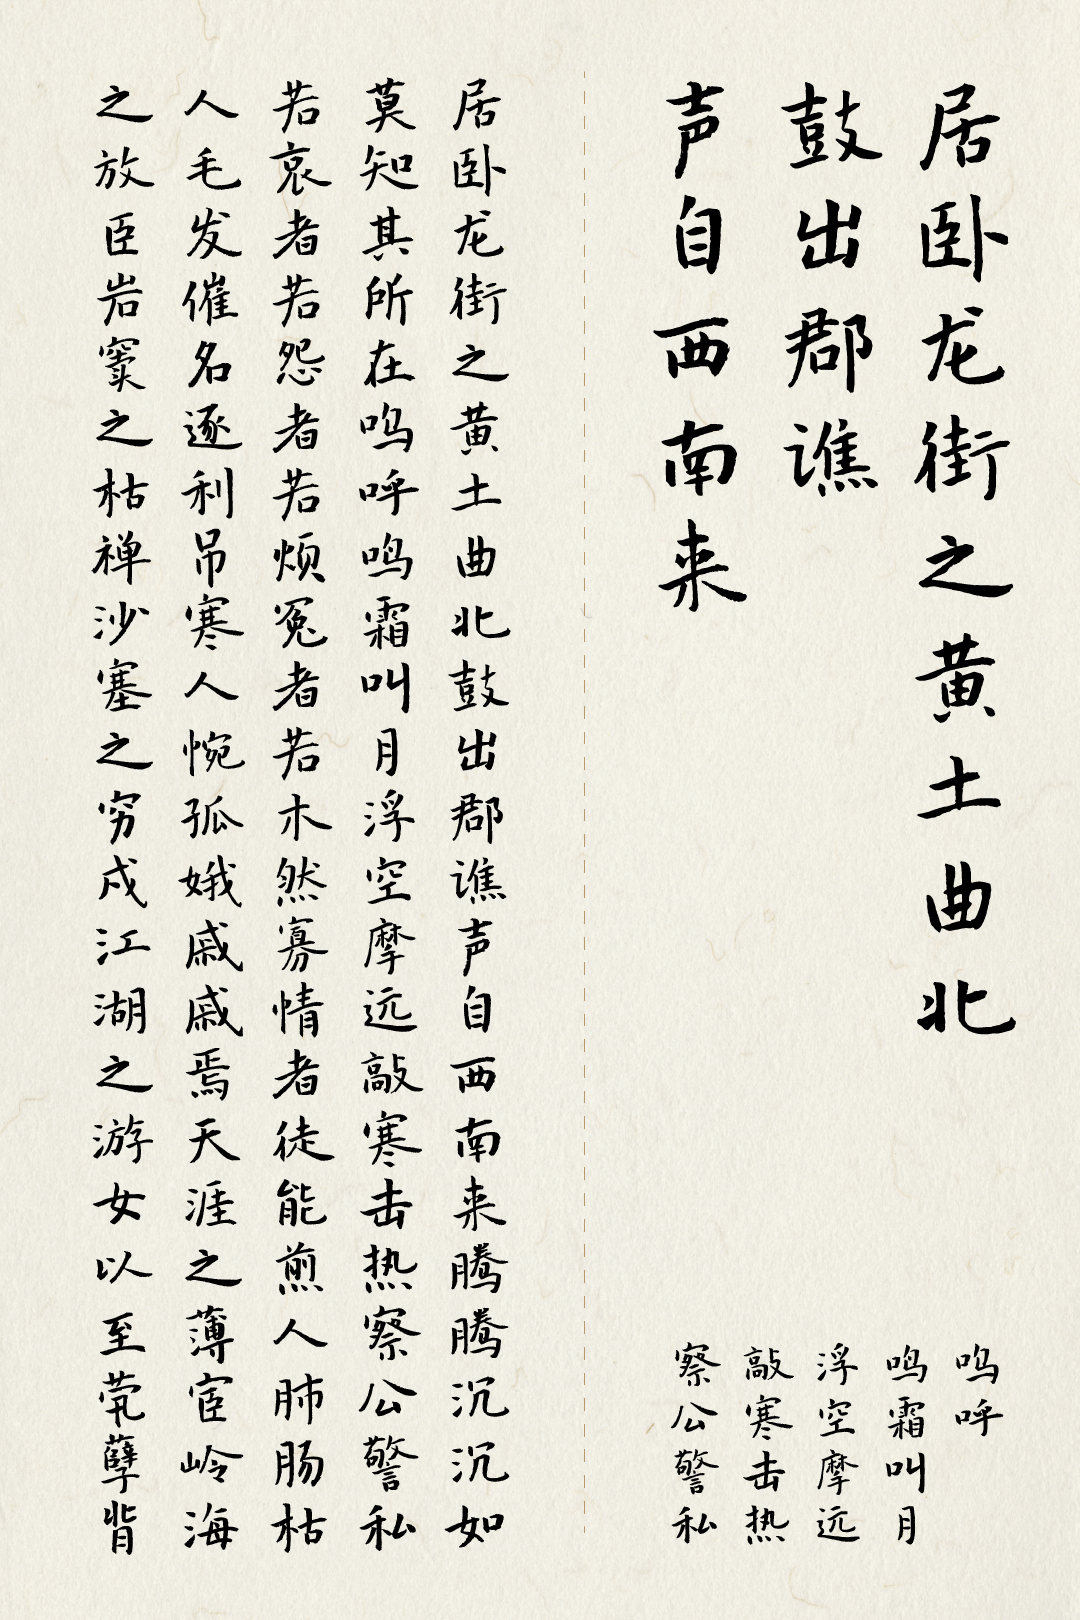 居卧龙街之黄土曲北
鼓出郡谯
声自西南来
呜呼
鸣霜叫月
浮空摩远
敲寒击热
察公警私
居卧龙街之黄土曲北鼓出郡谯声自西南来腾腾沉沉如
莫知其所在呜呼鸣霜叫月浮空摩远敲寒击热察公警私
若哀者若怨者若烦冤者若木然寡情者徒能煎人肺肠枯
人毛发催名逐利吊寒人惋孤娥戚戚焉天涯之薄宦岭海
之放臣岩窦之枯禅沙塞之穷戍江湖之游女以至茕孽背